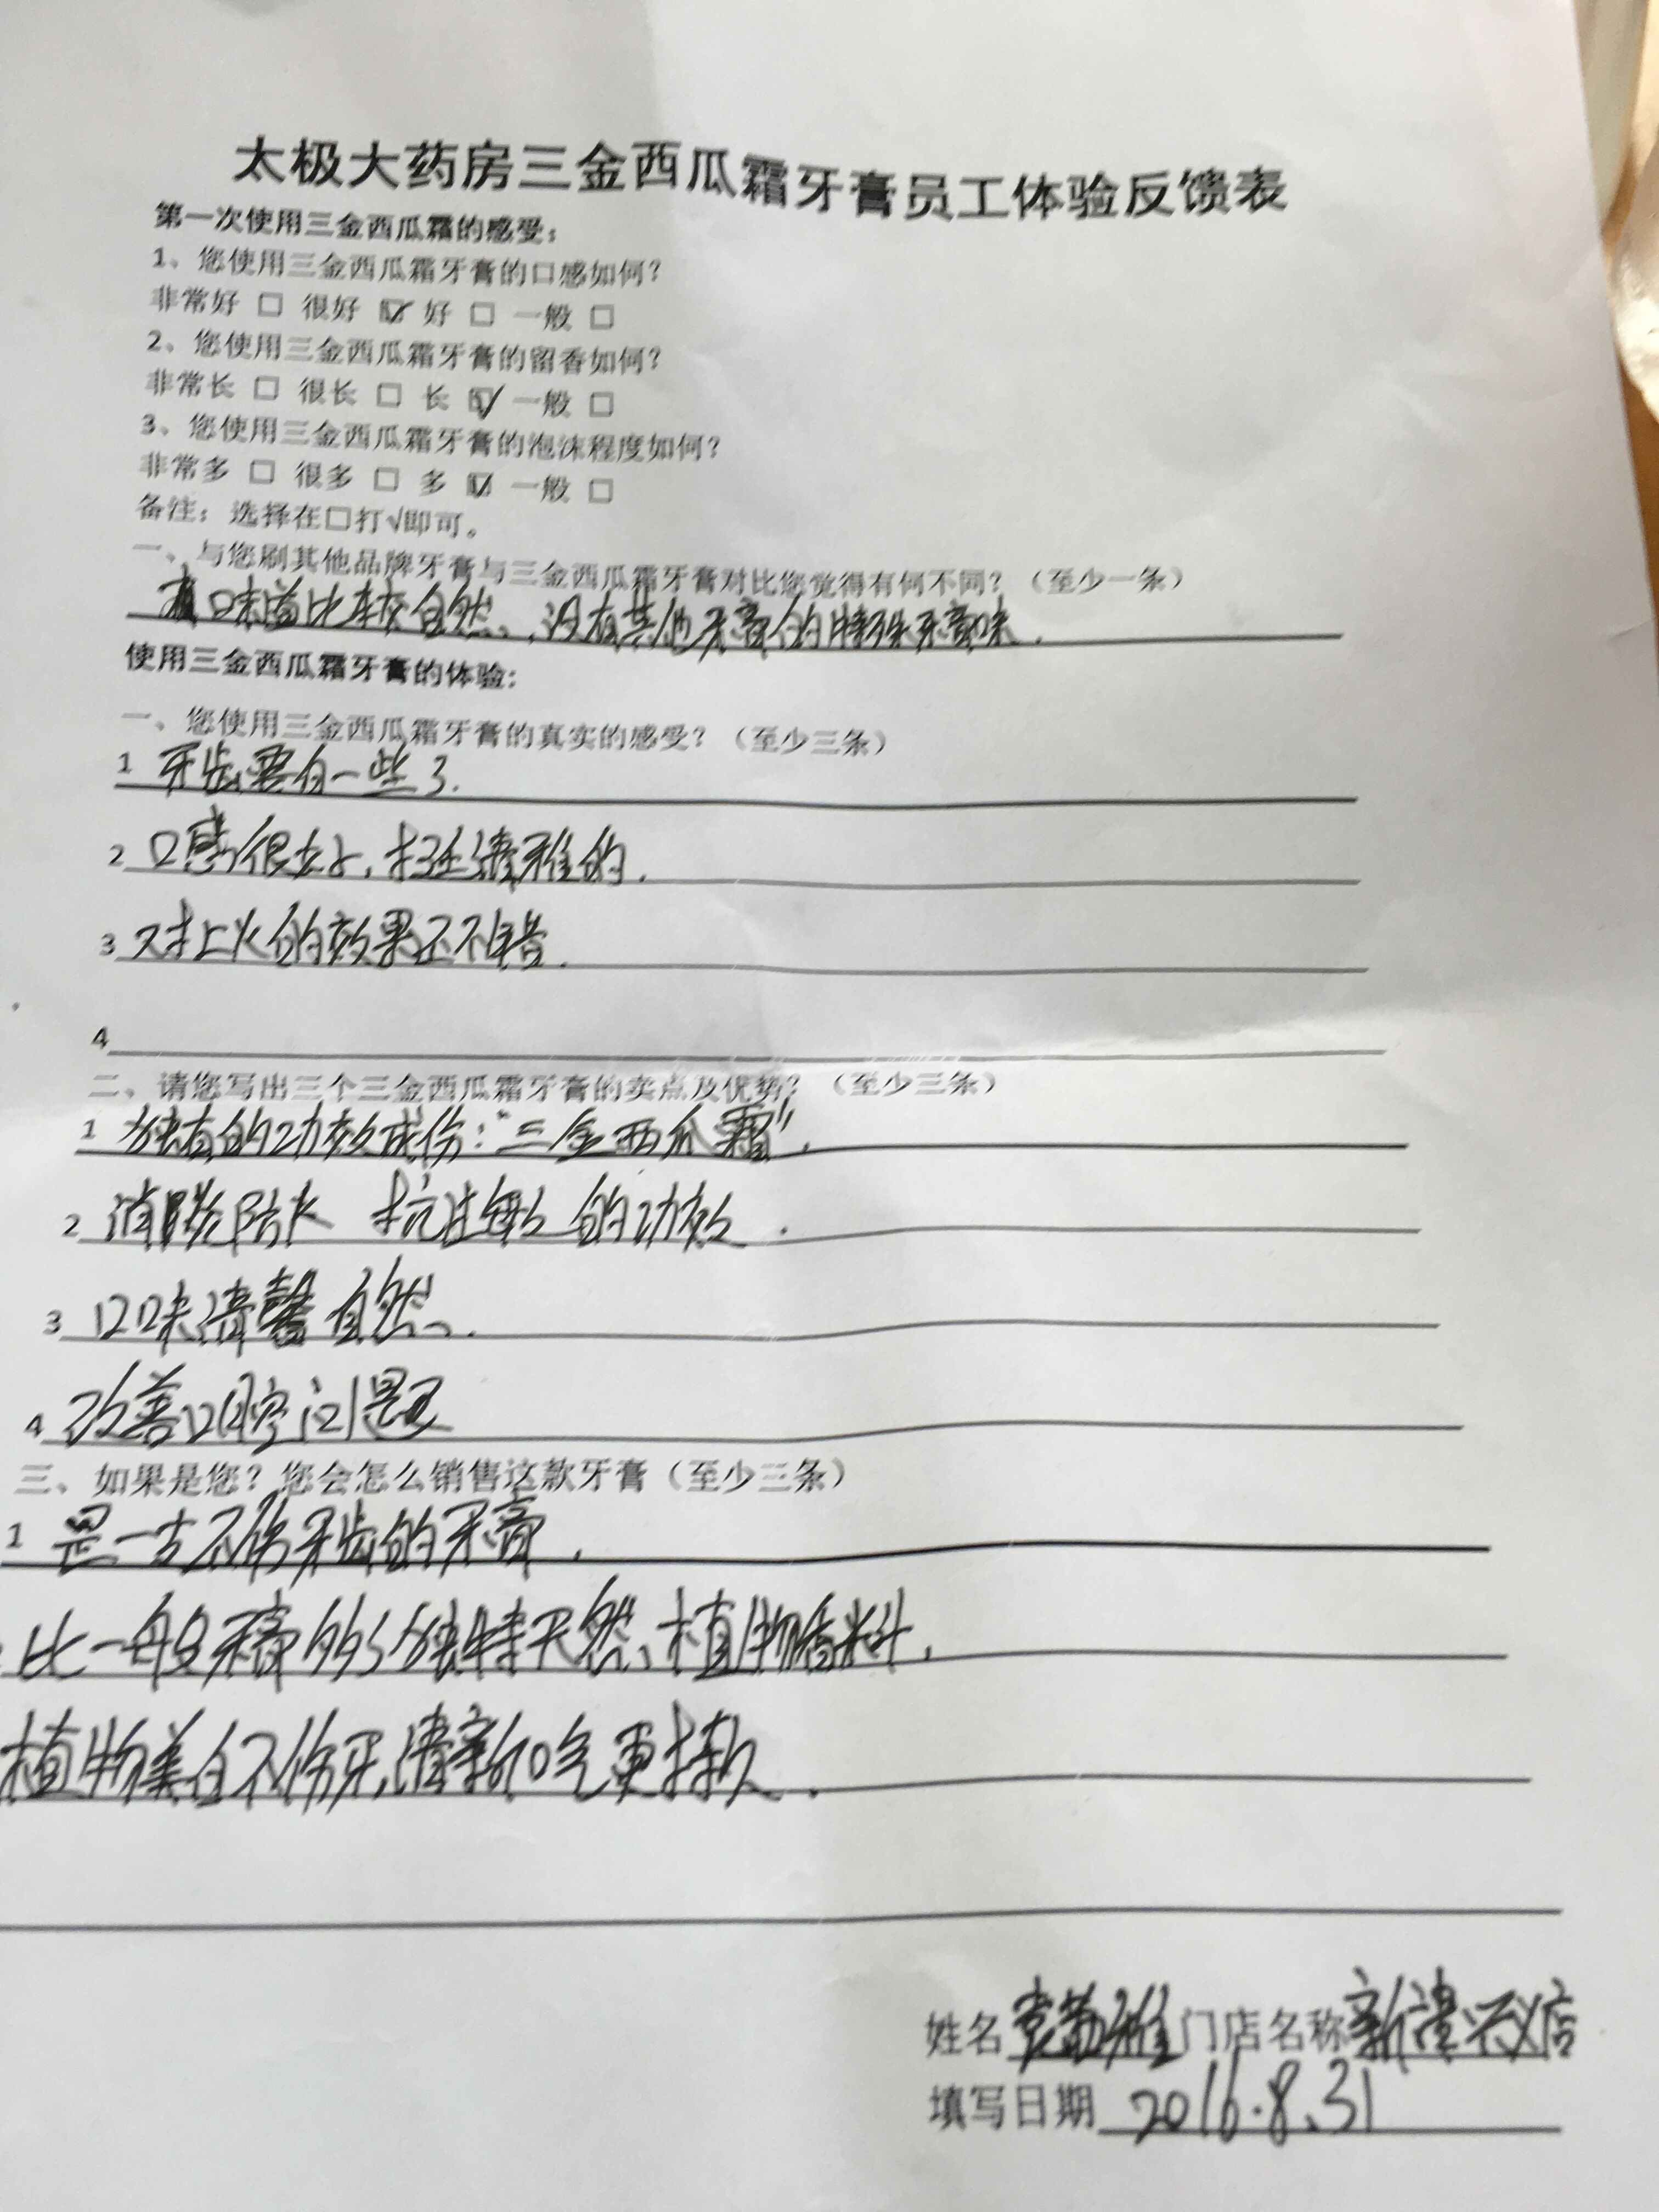 太极大药房三金西瓜霜牙膏员工体验反馈表
第一次使用三金西瓜霜的感受：
1、您使用三金西瓜霜牙膏的口感如何？
非常好 □ 很好 ☑ 好 □ 一般 □
2、您使用三金西瓜霜牙膏的留香如何？
非常长 □ 很长 □ 长 ☑ 一般 □
3、您使用三金西瓜霜牙膏的泡沫程度如何？
非常多 □ 很多 □ 多 ☑ 一般 □
备注：选择在□打√即可。
一、与您刷其他品牌牙膏与三金西瓜霜牙膏对比您觉得有何不同？（至少一条）
口味道比较自然、,没有其他牙膏的特殊牙膏味.
使用三金西瓜霜牙膏的体验：
一、您使用三金西瓜霜牙膏的真实的感受？（至少三条）
1 牙齿要白一些了.
2 口感很好,挺清雅的.
3 对上火的效果还不错.
4
二、请您写出三个三金西瓜霜牙膏的卖点及优势？（至少三条）
1 独有的功效成份：“三金西瓜霜”.
2 消炎 抗过敏的功效.
3 口味清馨自然、.
4 改善口腔问题
三、如果是您？您会怎么销售这款牙膏（至少三条）
1 是一古不伤牙齿的牙膏.
比一般牙膏多独特天然、植物香料.
植物美白不伤牙,清新口气更持久.
姓名 雅 门店名称 新津兴义店
填写日期 2016.8.31